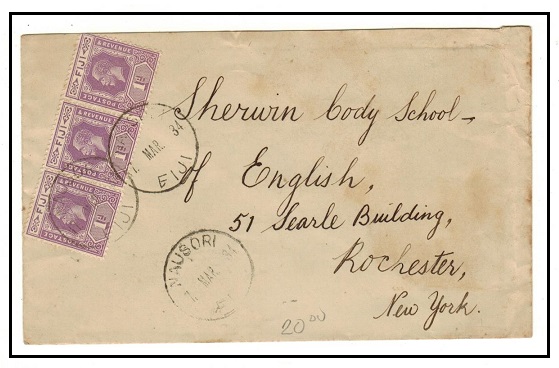 FIJI
POSTAGE
& REVENUE
1D
FIJI
POSTAGE
& REVENUE
1D
FIJI
POSTAGE
& REVENUE
1D
MAR. 34
FIJI
Sherwin Cody School -
of English,
51 Searle Building,
Rochester,
New York.
NAUSORI
7. MAR.
20 00